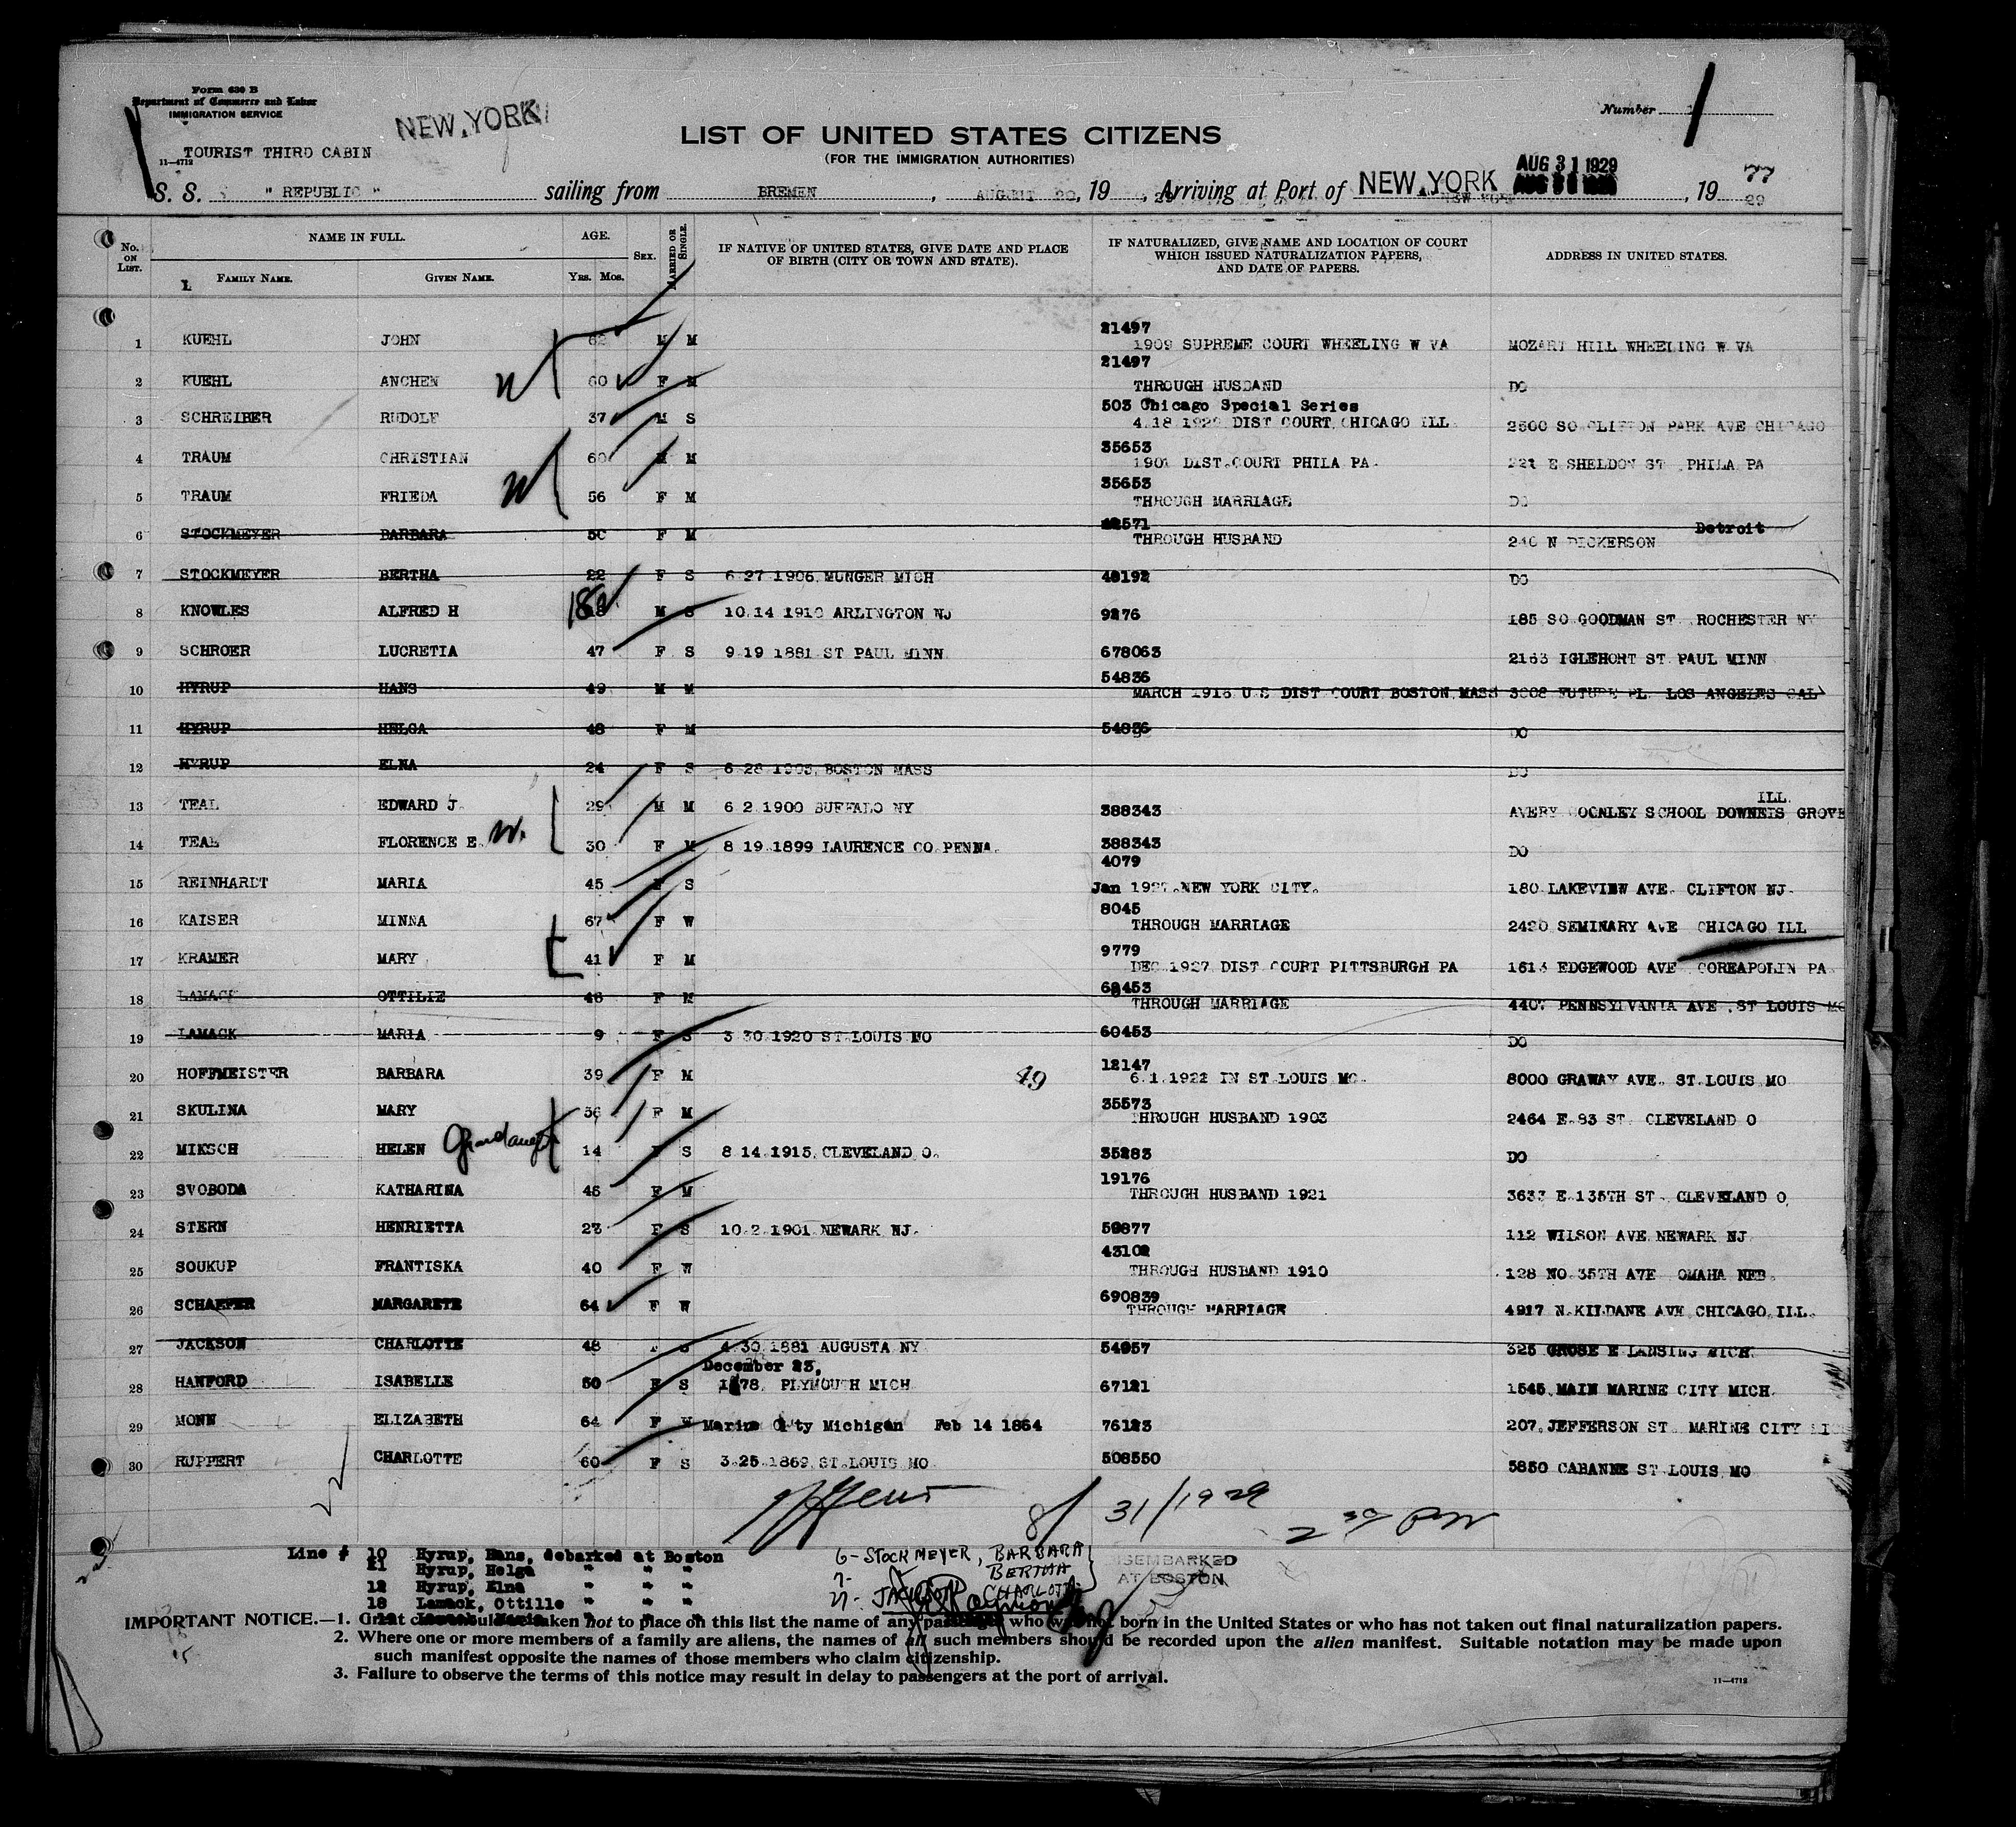 Form 630 B
Department of Commerce and Labor
IMMIGRATION SERVICE
NEW YORK
Number
11—4712
TOURIST THIRD CABIN
LIST OF UNITED STATES CITIZENS
(FOR THE IMMIGRATION AUTHORITIES)
AUG 31 1929
S. S. " REPUBLIC " sailing from BREMEN, AUGUST 20, 19 29, Arriving at Port of NEW YORK NEW YORK, 19 29
No. ON LIST. NAME IN FULL. AGE. SEX. MARRIED OR SINGLE. IF NATIVE OF UNITED STATES, GIVE DATE AND PLACE OF BIRTH (CITY OR TOWN AND STATE). IF NATURALIZED, GIVE NAME AND LOCATION OF COURT WHICH ISSUED NATURALIZATION PAPERS, AND DATE OF PAPERS. ADDRESS IN UNITED STATES.
FAMILY NAME. GIVEN NAME. YRS. MOS.
21497
1 KUEHL JOHN 62 M M 1909 SUPREME COURT WHEELING W VA MOZART HILL WHEELING W VA
21497
2 KUEHL ANCHEN 60 F M THROUGH HUSBAND DO
503 Chicago Special Series
3 SCHREIBER RUDOLF 37 M S 4.18 1929 DIST COURT CHICAGO ILL. 2500 SO CLIFTON PARK AVE CHICAGO
35653
4 TRAUM CHRISTIAN 60 M M 1901 DIST.COURT PHILA PA. 221 E SHELDON ST PHILA PA
35653
5 TRAUM FRIEDA 56 F M THROUGH MARRIAGE DO
42571 Detroit
6 STOCKMEYER BARBARA 50 F M THROUGH HUSBAND 240 N DICKERSON
7 STOCKMEYER BERTHA 22 F S 6 27 1906 MUNGER MICH 40192 DO
8 KNOWLES ALFRED H 18 M S 10.14 1910 ARLINGTON NJ 9276 185 SO GOODMAN ST ROCHESTER NY
9 SCHROER LUCRETIA 47 F S 9 19 1881 ST PAUL MINN 678063 2163 IGLEHORT ST PAUL MINN
54836
10 HYRUP HANS 49 M M MARCH 1918 U S DIST COURT BOSTON MASS 3808 FUTURE PL LOS ANGELES CAL
11 HYRUP HELGA 48 F M 54836 DO
12 HYRUP ELNA 24 F S 6 28 1905 BOSTON MASS DO
ILL.
13 TEAL EDWARD J. 29 M M 6 2 1900 BUFFALO NY 388343 AVERY COONLEY SCHOOL DOWNEIS GROVE
14 TEAL FLORENCE E. 30 F M 8 19 1899 LAURENCE CO PENNA. 388343 DO
4079
15 REINHARDT MARIA 45 F S Jan 1927 NEW YORK CITY. 180 LAKEVIEW AVE. CLIFTON NJ.
8045
16 KAISER MINNA 67 F W THROUGH MARRIAGE 2420 SEMINARY AVE CHICAGO ILL
9779
17 KRAMER MARY 41 F M DEC 1927 DIST COURT PITTSBURGH PA 1613 EDGEWOOD AVE COREAPOLIN PA
60453
18 LAMACK OTTILIE 48 F M THROUGH MARRIAGE 4407 PENNSYLVANIA AVE ST LOUIS MO
19 LAMACK MARIA 9 F S 3 30 1920 ST LOUIS MO 60453 DO
49 12147
20 HOFFMEISTER BARBARA 39 F M 6.1.1922 IN ST LOUIS MO. 8000 GRAWAY AVE. ST.LOUIS MO
35573
21 SKULINA MARY 56 F M THROUGH HUSBAND 1903 2464 E.83 ST. CLEVELAND O
22 MIKSCH HELEN 14 F S 8 14 1915 CLEVELAND O. 35283 DO
19176
23 SVOBODA KATHARINA 45 F M THROUGH HUSBAND 1921 3633 E.135TH ST CLEVELAND O
24 STERN HENRIETTA 23 F S 10 2 1901 NEWARK NJ. 50877 112 WILSON AVE NEWARK NJ
43102
25 SOUKUP FRANTISKA 40 F W THROUGH HUSBAND 1910 128 NO 35TH AVE OMAHA NEB.
690839
26 SCHAEFER MARGARETE 64 F W THROUGH MARRIAGE 4917 N.KILDANE AVE CHICAGO ILL.
27 JACKSON CHARLOTTE 48 F S 4 30 1881 AUGUSTA NY 54957 325 GROSE E LANSING MICH
December 23,
28 HANFORD ISABELLE 50 F S 1878 PLYMOUTH MICH 67121 1545 MAIN MARINE CITY MICH.
29 MONN ELIZABETH 64 F W Marine City Michigan Feb 14 1864 76123 207 JEFFERSON ST MARINE CITY MICH
30 RUPPERT CHARLOTTE 60 F S 3.25 1869 ST LOUIS MO 508550 5850 CABANNE ST LOUIS MO
8/31/1929 2 30 PM
Line # 10 Hyrup, Hans, debarked at Boston
11 Hyrup, Helga " " "
12 Hyrup, Elna " " "
18 Lamack, Ottille " " "
6 - STOCKMEYER, BARBARA
7- BERTHA
27- JACKSON CHARLOTTE
DISEMBARKED
AT BOSTON
IMPORTANT NOTICE.—1. Great care should be taken not to place on this list the name of any passenger who was not born in the United States or who has not taken out final naturalization papers.
2. Where one or more members of a family are aliens, the names of all such members should be recorded upon the alien manifest. Suitable notation may be made upon
such manifest opposite the names of those members who claim citizenship.
3. Failure to observe the terms of this notice may result in delay to passengers at the port of arrival.
11—4712